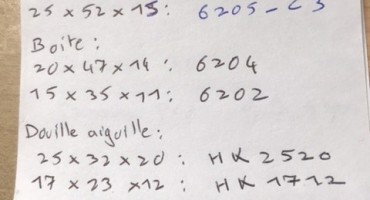 25 x 52 x 15: 6205-C3
Boite:
20 x 47 x 14: 6204
15 x 35 x 11: 6202
Douille aiguille:
25 x 32 x 20: HK 2520
17 x 23 x 12: HK 1712